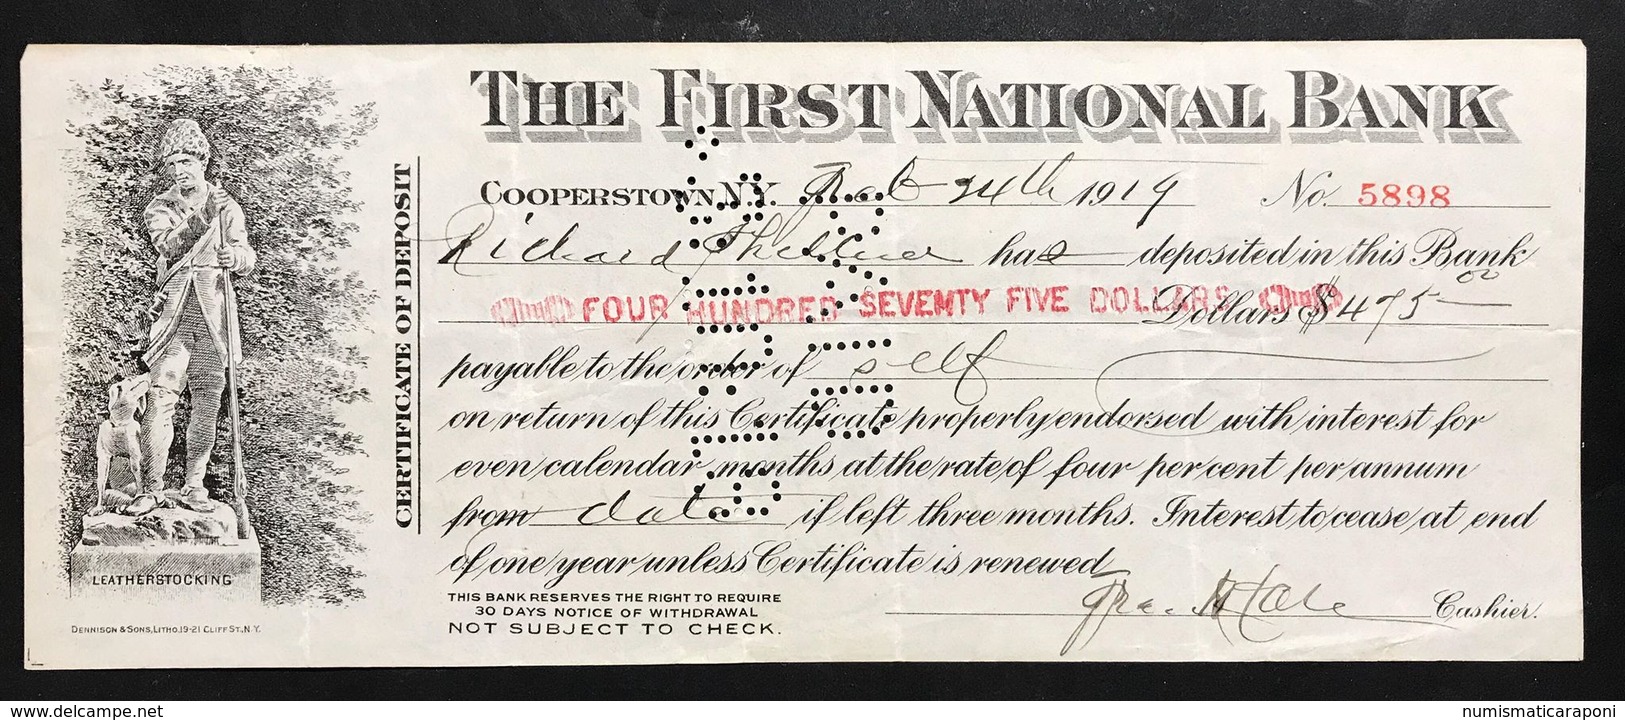 THE FIRST NATIONAL BANK
COOPERSTOWN, N.Y. Feb 24th 1919 No. 5898
Richard has deposited in this Bank
FOUR HUNDRED SEVENTY FIVE DOLLARS Dollars $475 00
payable to the order of self
on return of this Certificate properly endorsed with interest for
even calendar months at the rate of four per cent per annum
from date if left three months. Interest to cease at end
of one year unless Certificate is renewed
THIS BANK RESERVES THE RIGHT TO REQUIRE
30 DAYS NOTICE OF WITHDRAWAL
NOT SUBJECT TO CHECK.
Cashier.
CERTIFICATE OF DEPOSIT
LEATHERSTOCKING
DENNISON & SONS, LITHO. 19-21 CLIFF ST., N.Y.
www.delcampe.net
numismaticaraponi